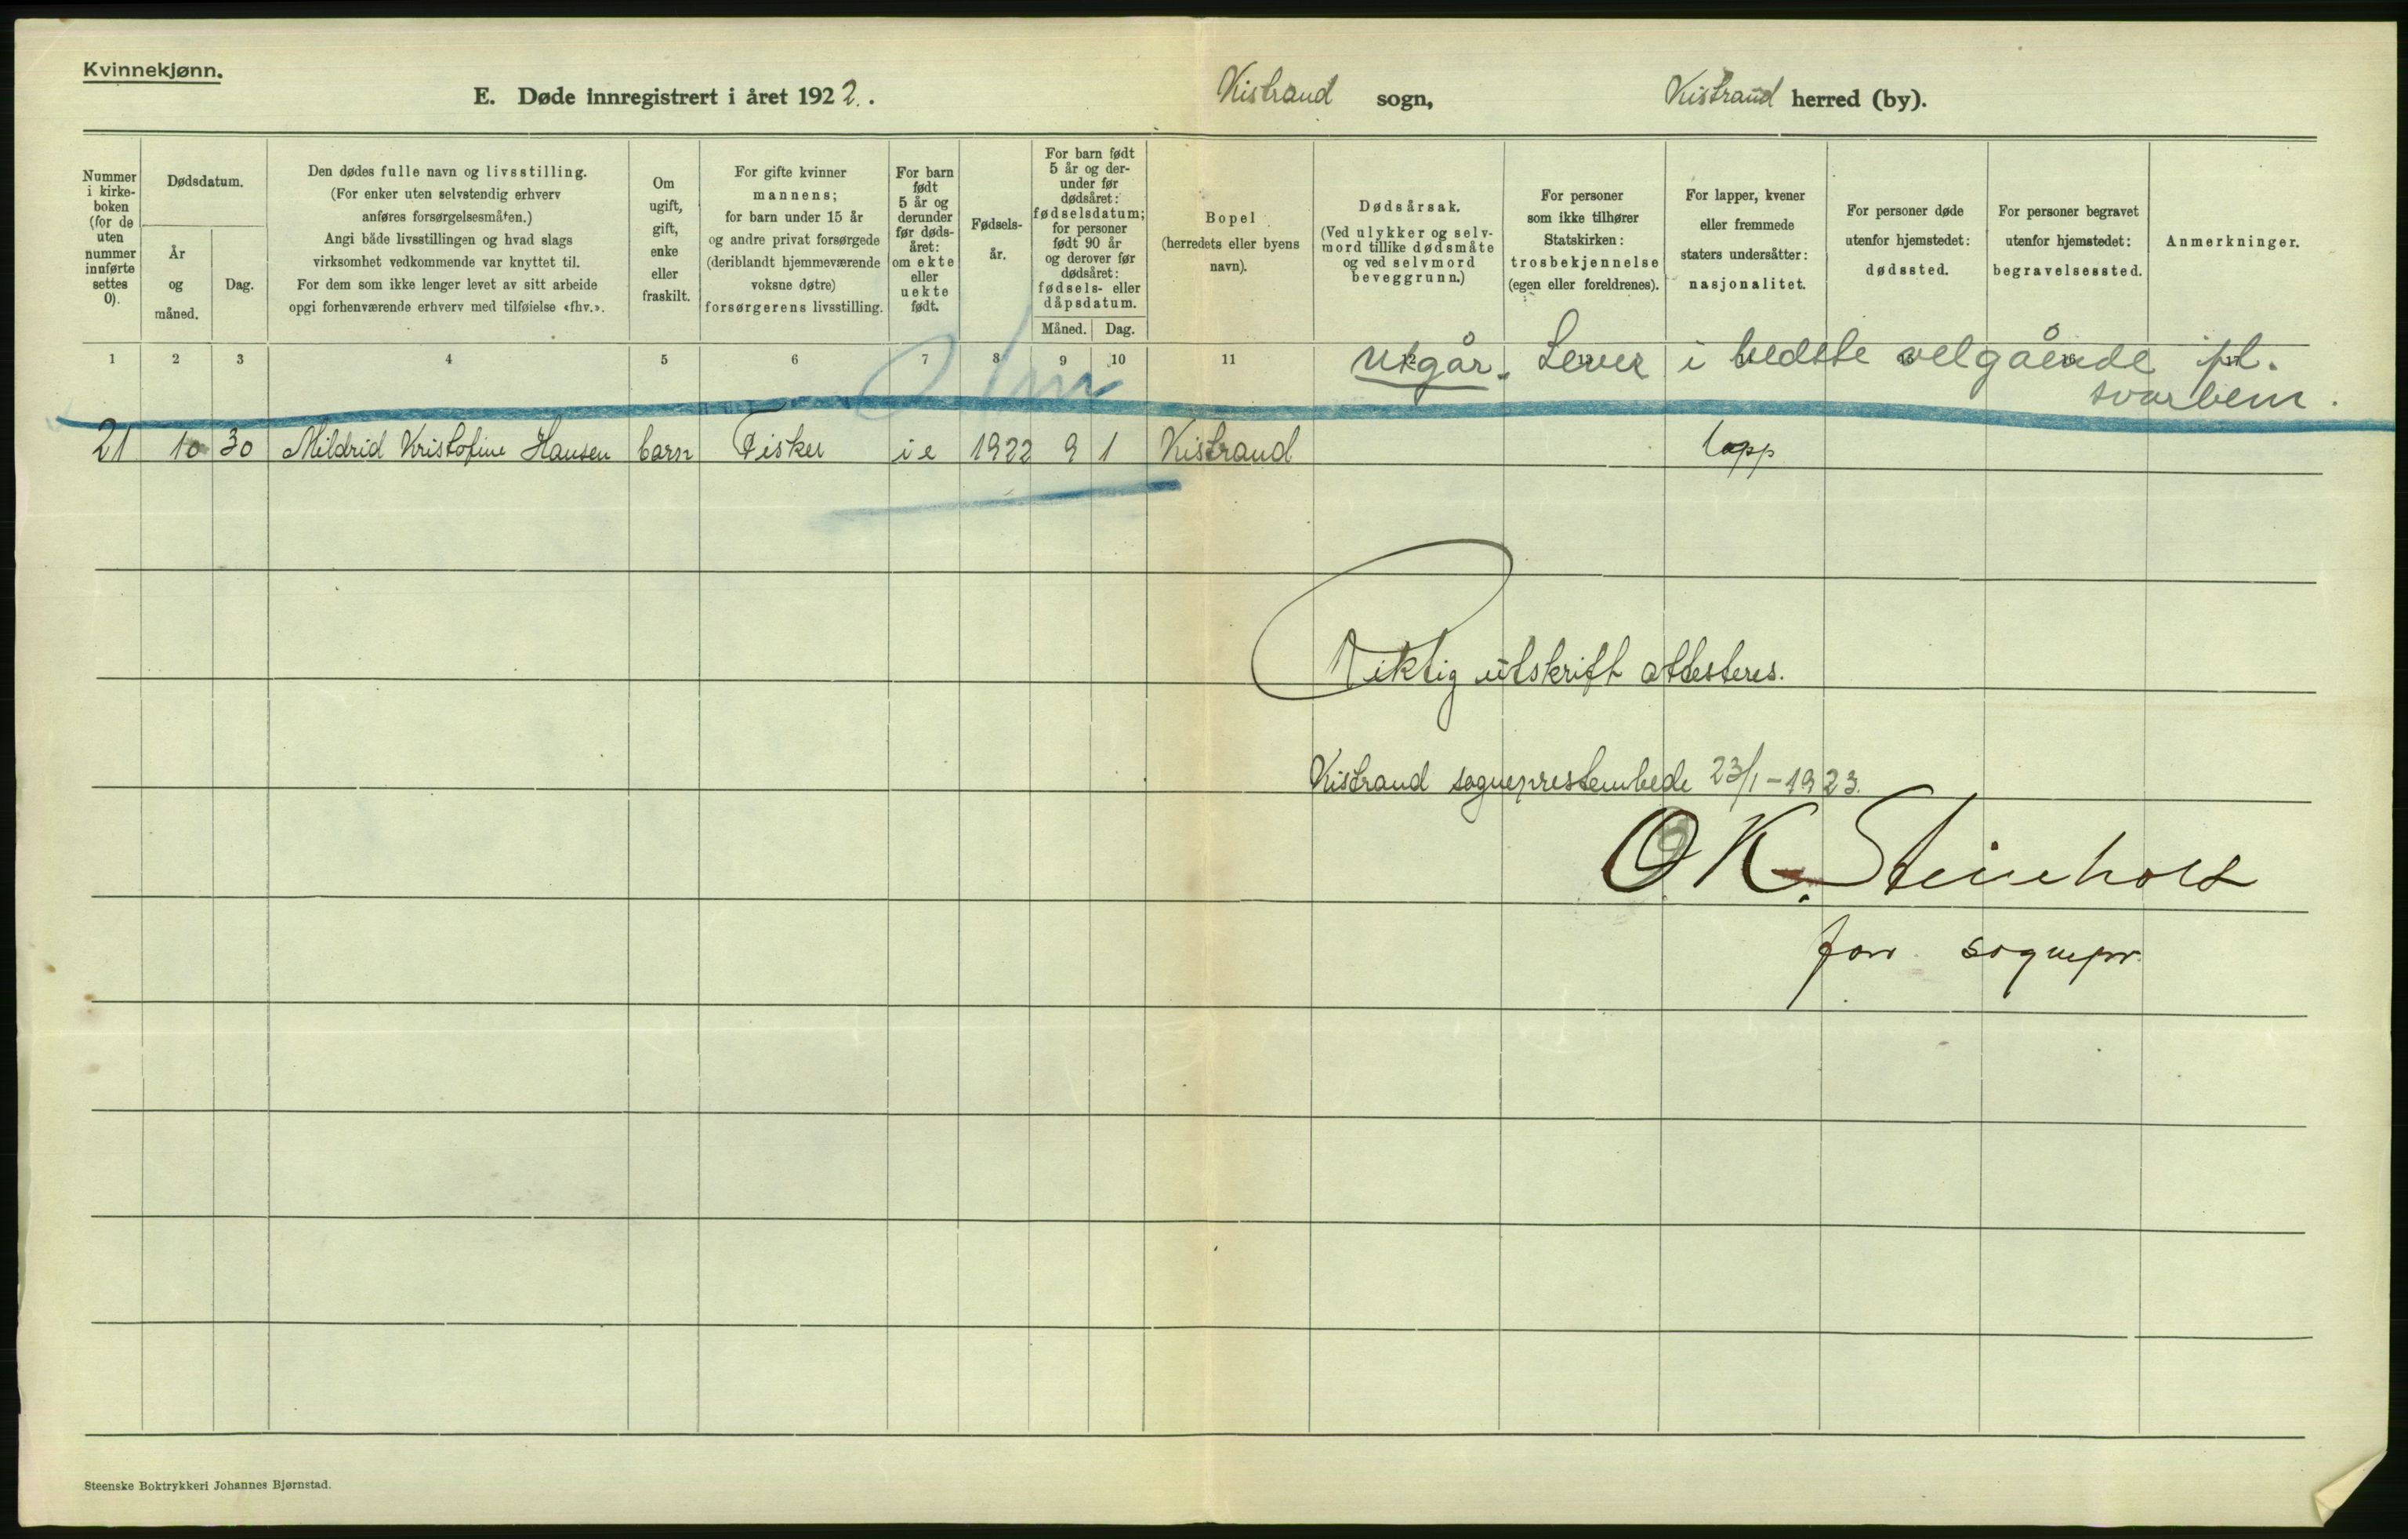 Kvinnekjønn.
E. Døde innregistrert i året 1922. Kistrand sogn, Kistrand herred (by).
Nummer
i kirke-
boken
(for de
uten
nummer
innførte
settes
0).
Dødsdatum.
År
og
måned.
Dag.
Den dødes fulle navn og livsstilling.
(For enker uten selvstendig erhverv
anføres forsørgelsesmåten.)
Angi både livsstillingen og hvad slags
virksomhet vedkommende var knyttet til.
For dem som ikke lenger levet av sitt arbeide
opgi forhenværende erhverv med tilføielse «fhv.».
Om
ugift,
gift,
enke
eller
fraskilt.
For gifte kvinner
mannens;
for barn under 15 år
og andre privat forsørgede
(deriblandt hjemmeværende
voksne døtre)
forsørgerens livsstilling.
For barn
født
5 år og
derunder
før døds-
året:
om ekte
eller
uekte
født.
Fødsels-
år.
For barn født
5 år og der-
under før
dødsåret:
fødselsdatum;
for personer
født 90 år
og derover før
dødsåret:
fødsels- eller
dåpsdatum.
Måned. Dag.
Bopel
(herredets eller byens
navn).
Dødsårsak.
(Ved ulykker og selv-
mord tillike dødsmåte
og ved selvmord
beveggrunn.)
For personer
som ikke tilhører
Statskirken:
trosbekjennelse
(egen eller foreldrenes).
For lapper, kvener
eller fremmede
staters undersåtter:
nasjonalitet.
For personer døde
utenfor hjemstedet:
dødssted.
For personer begravet
utenfor hjemstedet:
begravelsessted.
Anmerkninger.
1 2 3 4 5 6 7 8 9 10 11 12 13 14 15 16 17
Utgår. Lever i bedste velgående ifl.
svarbem.
21 10 30 Mildrid Kristofine Hansen barn Fisker i e 1922 9 1 Kistrand lapp
Riktig utskrift attesteres.
Kistrand sogneprestembede 23/1-1923.
O. K. Steinholt
fon. sognepr.
Steenske Boktrykkeri Johannes Bjørnstad.